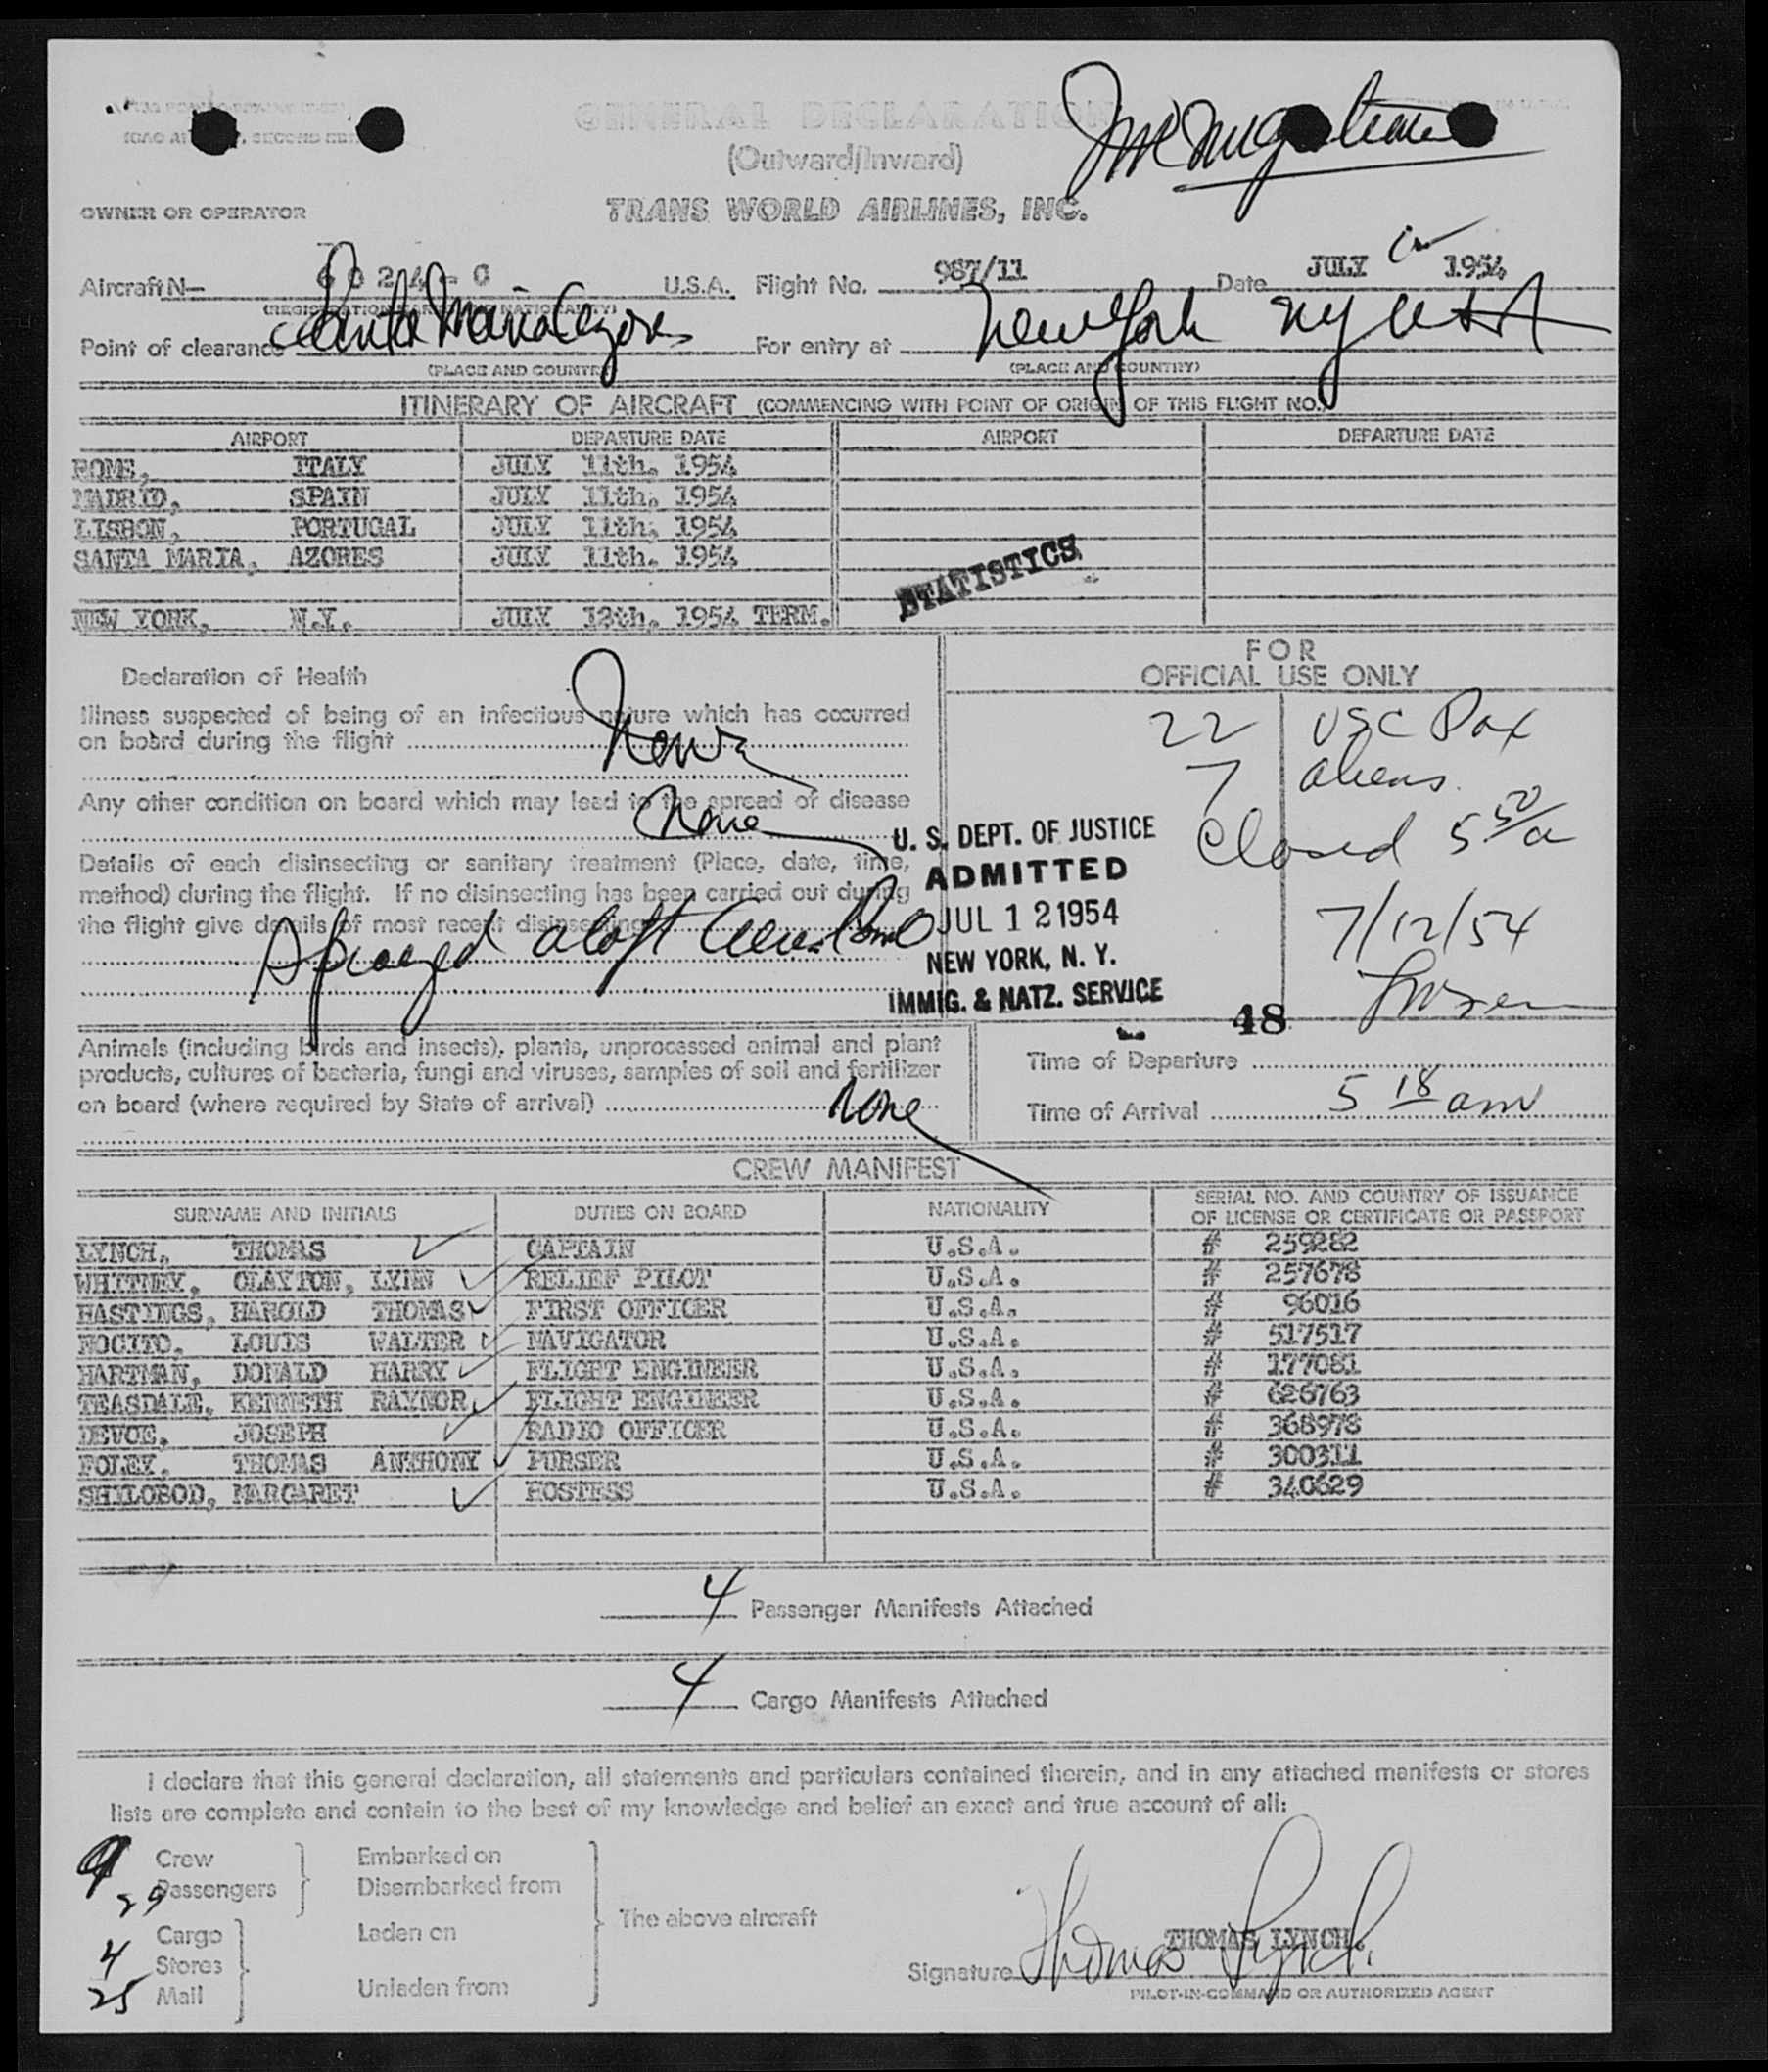 GENERAL DECLARATION
(Outward/Inward)
Immigration
OWNER OR OPERATOR TRANS WORLD AIRLINES, INC.
Aircraft N— 6024-C U.S.A. Flight No. 987/11 Date JULY 1954
Point of clearance Santa Maria Azores For entry at New York NY USA
(PLACE AND COUNTRY) (PLACE AND COUNTRY)
ITINERARY OF AIRCRAFT (COMMENCING WITH POINT OF ORIGIN OF THIS FLIGHT NO.)
AIRPORT DEPARTURE DATE AIRPORT DEPARTURE DATE
ROME, ITALY JULY 11th. 1954
MADRID, SPAIN JULY 11th. 1954
LISBON, PORTUGAL JULY 11th. 1954
SANTA MARIA, AZORES JULY 11th. 1954
STATISTICS
NEW YORK, N.Y. JULY 12th. 1954 TERM.
FOR
OFFICIAL USE ONLY
Declaration of Health
Illness suspected of being of an infectious nature which has occurred
on board during the flight None
Any other condition on board which may lead to the spread of disease
None
Details of each disinsecting or sanitary treatment (Place, date, time,
method) during the flight. If no disinsecting has been carried out during
the flight give details of most recent disinsecting
Sprayed aloft
22 USC Pax
7 aliens.
Closed 5 50/a
7/12/54
U. S. DEPT. OF JUSTICE
ADMITTED
JUL 12 1954
NEW YORK, N. Y.
IMMIG. & NATZ. SERVICE
48
Animals (including birds and insects), plants, unprocessed animal and plant
products, cultures of bacteria, fungi and viruses, samples of soil and fertilizer
on board (where required by State of arrival) None
Time of Departure
Time of Arrival 5 18 am
CREW MANIFEST
SURNAME AND INITIALS DUTIES ON BOARD NATIONALITY SERIAL NO. AND COUNTRY OF ISSUANCE
OF LICENSE OR CERTIFICATE OR PASSPORT
LYNCH, THOMAS CAPTAIN U.S.A. # 259282
WHITNEY, CLAYTON, LYNN RELIEF PILOT U.S.A. # 257678
HASTINGS, HAROLD THOMAS FIRST OFFICER U.S.A. # 96016
NOCITO, LOUIS WALTER NAVIGATOR U.S.A. # 517517
HARTMAN, DONALD HARRY FLIGHT ENGINEER U.S.A. # 177081
TEASDALE, KENNETH RAYNOR, FLIGHT ENGINEER U.S.A. # 626763
DEVOE, JOSEPH RADIO OFFICER U.S.A. # 368978
FOLEY, THOMAS ANTHONY PURSER U.S.A. # 300311
SHILOBOD, MARGARET HOSTESS U.S.A. # 340629
4 Passenger Manifests Attached
4 Cargo Manifests Attached
I declare that this general declaration, all statements and particulars contained therein, and in any attached manifests or stores
lists are complete and contain to the best of my knowledge and belief an exact and true account of all:
9 Crew Embarked on
29 Passengers Disembarked from
The above aircraft
Cargo Laden on
4 Stores
25 Mail Unladen from
THOMAS LYNCH.
Signature Thomas Lynch
PILOT-IN-COMMAND OR AUTHORIZED AGENT